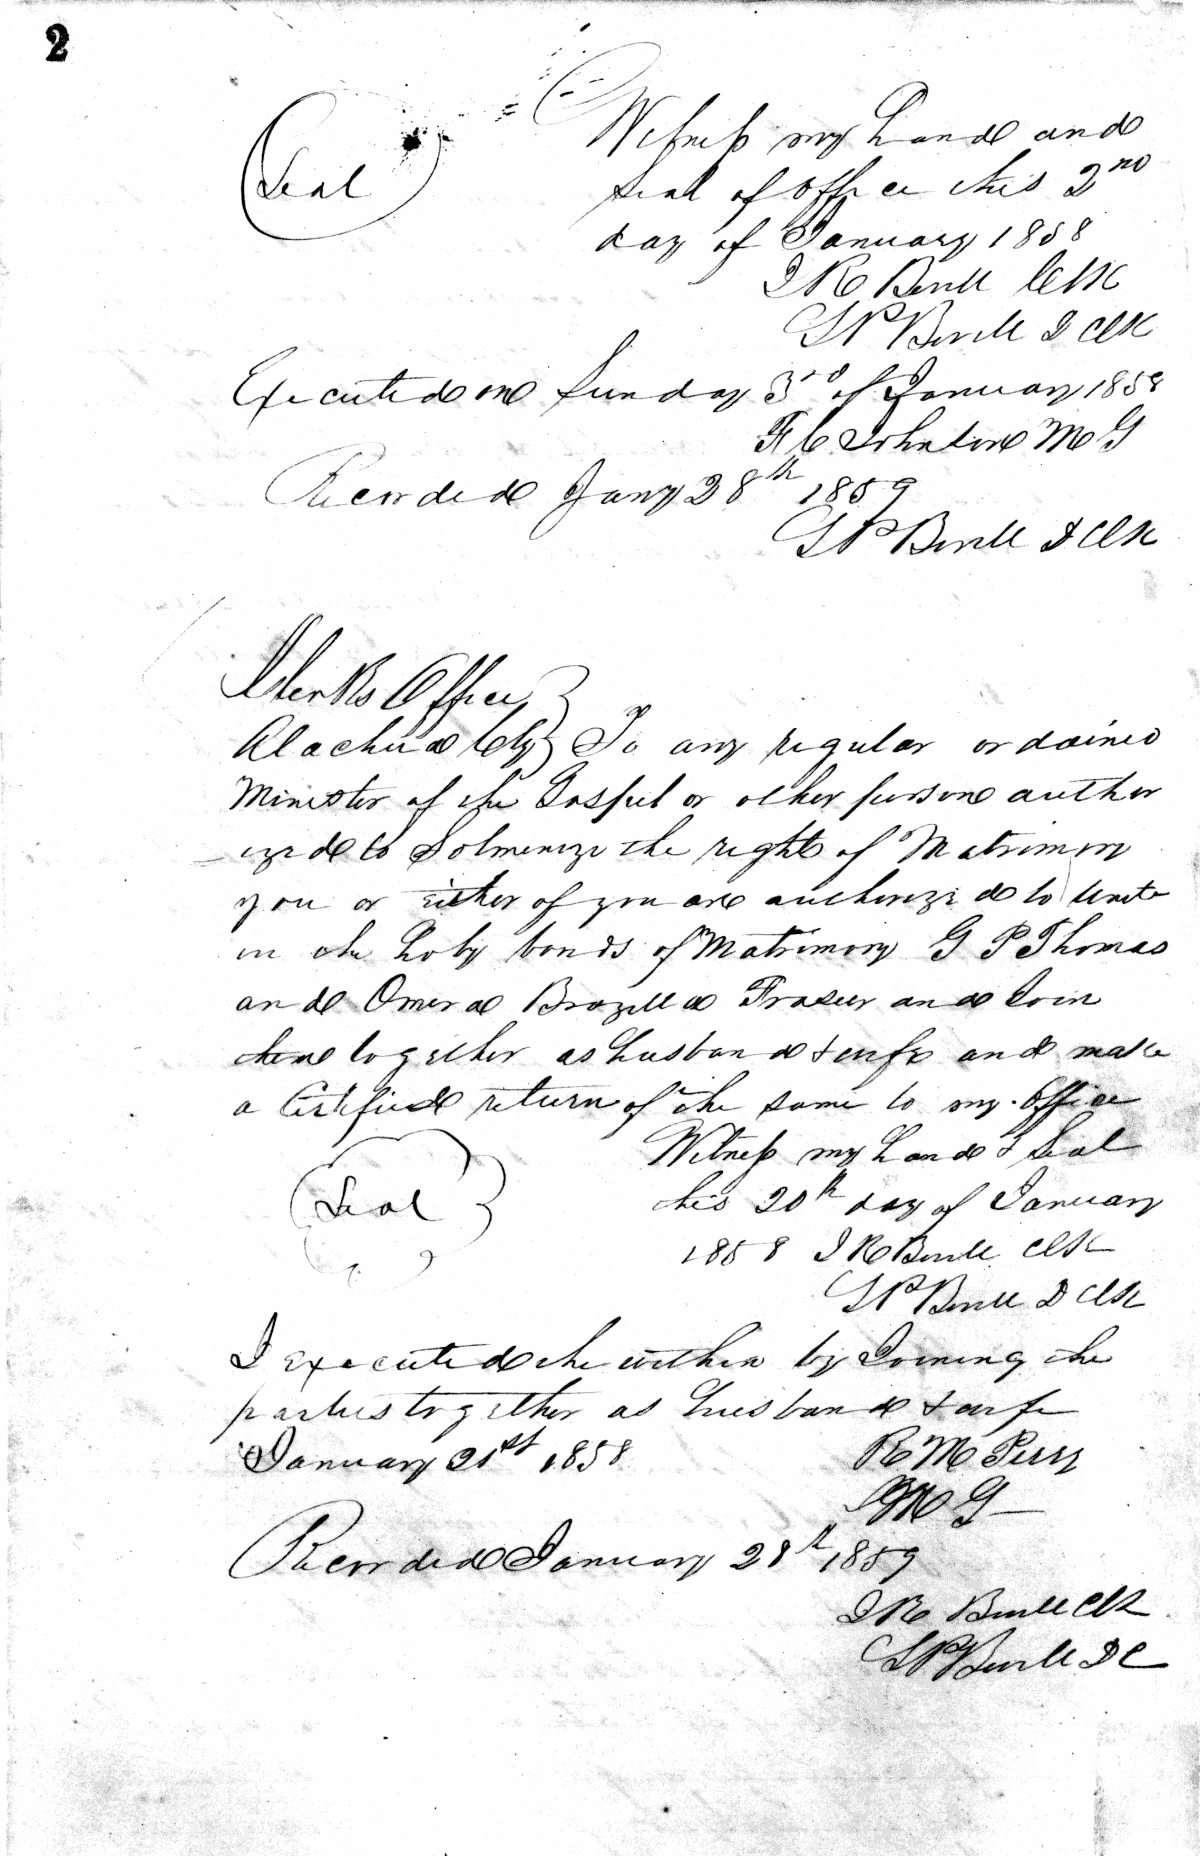 2
Witness my hand and
Seal
Seal of office this 2nd
day of January 1858
Clk
L P D Clk
Executed on Sunday 3rd of January 1858
F C Johnston M G
Recorded Jany 28th 1859
L P D Clk
Clerks Office
Alachua Cty } To any regular ordained
Minister of the Gospel or other person author
ized to Solmenize the right of Matrimony
you or either of you are authorized to Unite
in the holy bonds of Matrimony G P Thomas
and Frasier and Join
them together as husband & wife and make
a Certified return of the same to my office
Witness my hand & Seal
Seal
this 20th day of January
1858 Clk
L P D Clk
I executed the within by Joining the
parties together as husband & wife
January 21st 1858 R M Perry
M G
Recorded January 28th 1859
Clk
L P D C